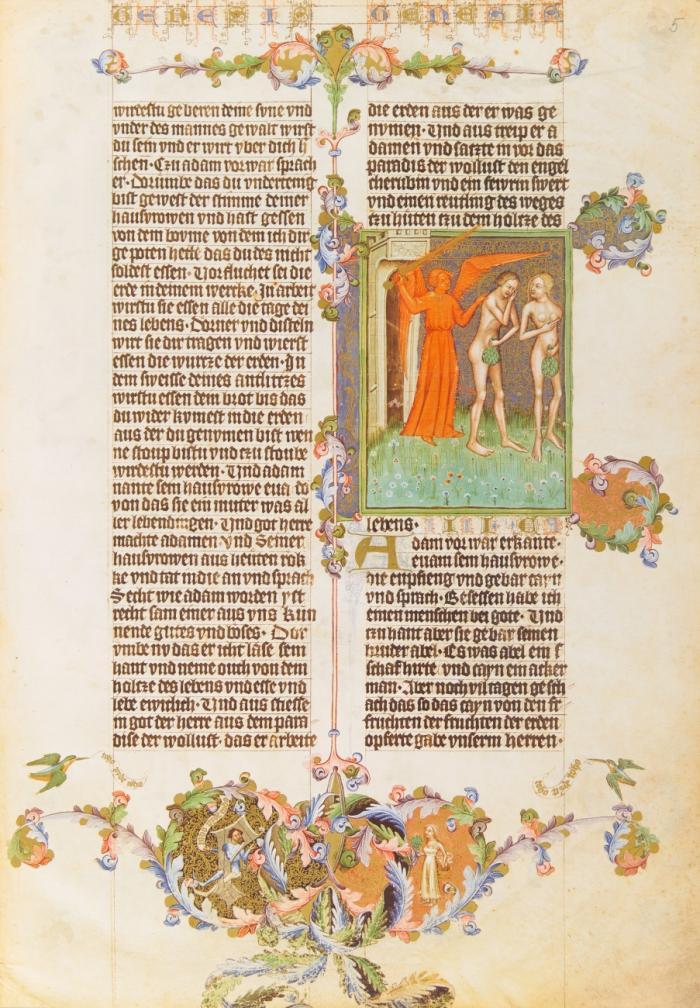 GENESIS GENESIS
5
wirdestu geberen deine syne vnd
vnder des mannes gewalt wirst
du sein vnd er wirt vber dich h
schen · Czu adam vorwar sprach
er · Dorumbe das du vndertenig
bist gewest der stimme deiner
hausvrowen vnd hast gessen
von dem boyme von dem ich dir
gepoten hette das du des nicht
soldest essen · Vorfluchet sei die
erde in deinem wercke · In arbeit
wirstu sie essen alle die tage dei
nes lebens · Dorner vnd disteln
wirt sie dir tragen vnd wierst
essen die wurcze der erden · In
dem sweisse deines antlitczes
wirstu essen dem brot bis das
du wider kymest in die erden
aus der du genymen bist wen
ne stoup bistu vnd czu stoube
wirdestu werden · Vnd adam
nante sein hausvrowe eua do
von das sie ein muter was al
ler lebendingen · Vnd got herre
machte adamen vnd Seiner
hausvrowen aus heuten rok
ke vnd tat in die an vnd sprach
Secht wie adam worden yst
recht sam einer aus vns kun
nende gutes vnd boses · Dor
vmbe ny das er icht lase sein
hant vnd neme ouch von dem
holtze des lebens vnd esse vnd
lebe ewiclich · Vnd aus sliesse
in got der herre aus dem para
dise der wollust · das er arbeite
die erden aus der er was ge
nymen · Vnd aus treip er a
damen vnd satzte in vor das
paradis der wollust den engel
cherubin vnd ein fewrin swert
vnd einen reutling des weges
czu huten czu dem holtze des
lebens · IIII C
Adam vorwar erkante ·
euam sein hausvrowe ·
die enpfieng vnd gebar cayn
vnd sprach · Besessen habe ich
einen menschen bei gote · Vnd
czu hant aber sie gebar seinen
bruder abel · Es was abel ein s
schafhirte vnd cayn ein acker
man · Aber noch vil tagen gesch
ach das so das cayn von den fr
fruchten der fruchten der erden
opferte gabe vnserm herren ·